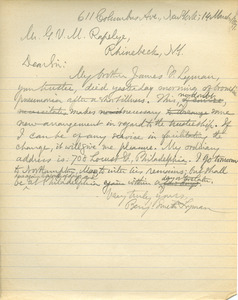 611 Columbus Ave, New York, 14 March
Mr. G. V. M. Rapelye,
Rhinebeck, N.Y.
Dear Sir:
My brother James N. Lyman,
you trustee, died yesterday morning of
pneumonia after a brief illness. This, of
makes necessary to arrange some
new arrangement in regard to the trusteeship. If
I can be of any service in facilitating the
change, it will give me pleasure. My ordinary
address is: 708 Locust St, Philadelphia. I go tomorrow
to Northampton, Mass. with his remains; but shall
be at Philadelphia, again within a
Very truly yours,
Benj. Smith Lyman.